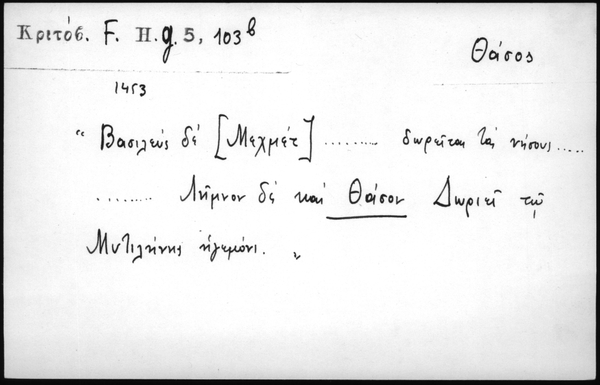 Κριτόβ. F. H. g. 5, 103 b
Θάσος
1453
“ Βασιλεύς δέ [Μεχμέτ] ......... δωρεῖται τάς νήσους .....
......... Λῆμνον δέ καί Θάσον Δωριεῖ τῷ
Μυτιλήνης ἡγεμόνι. „